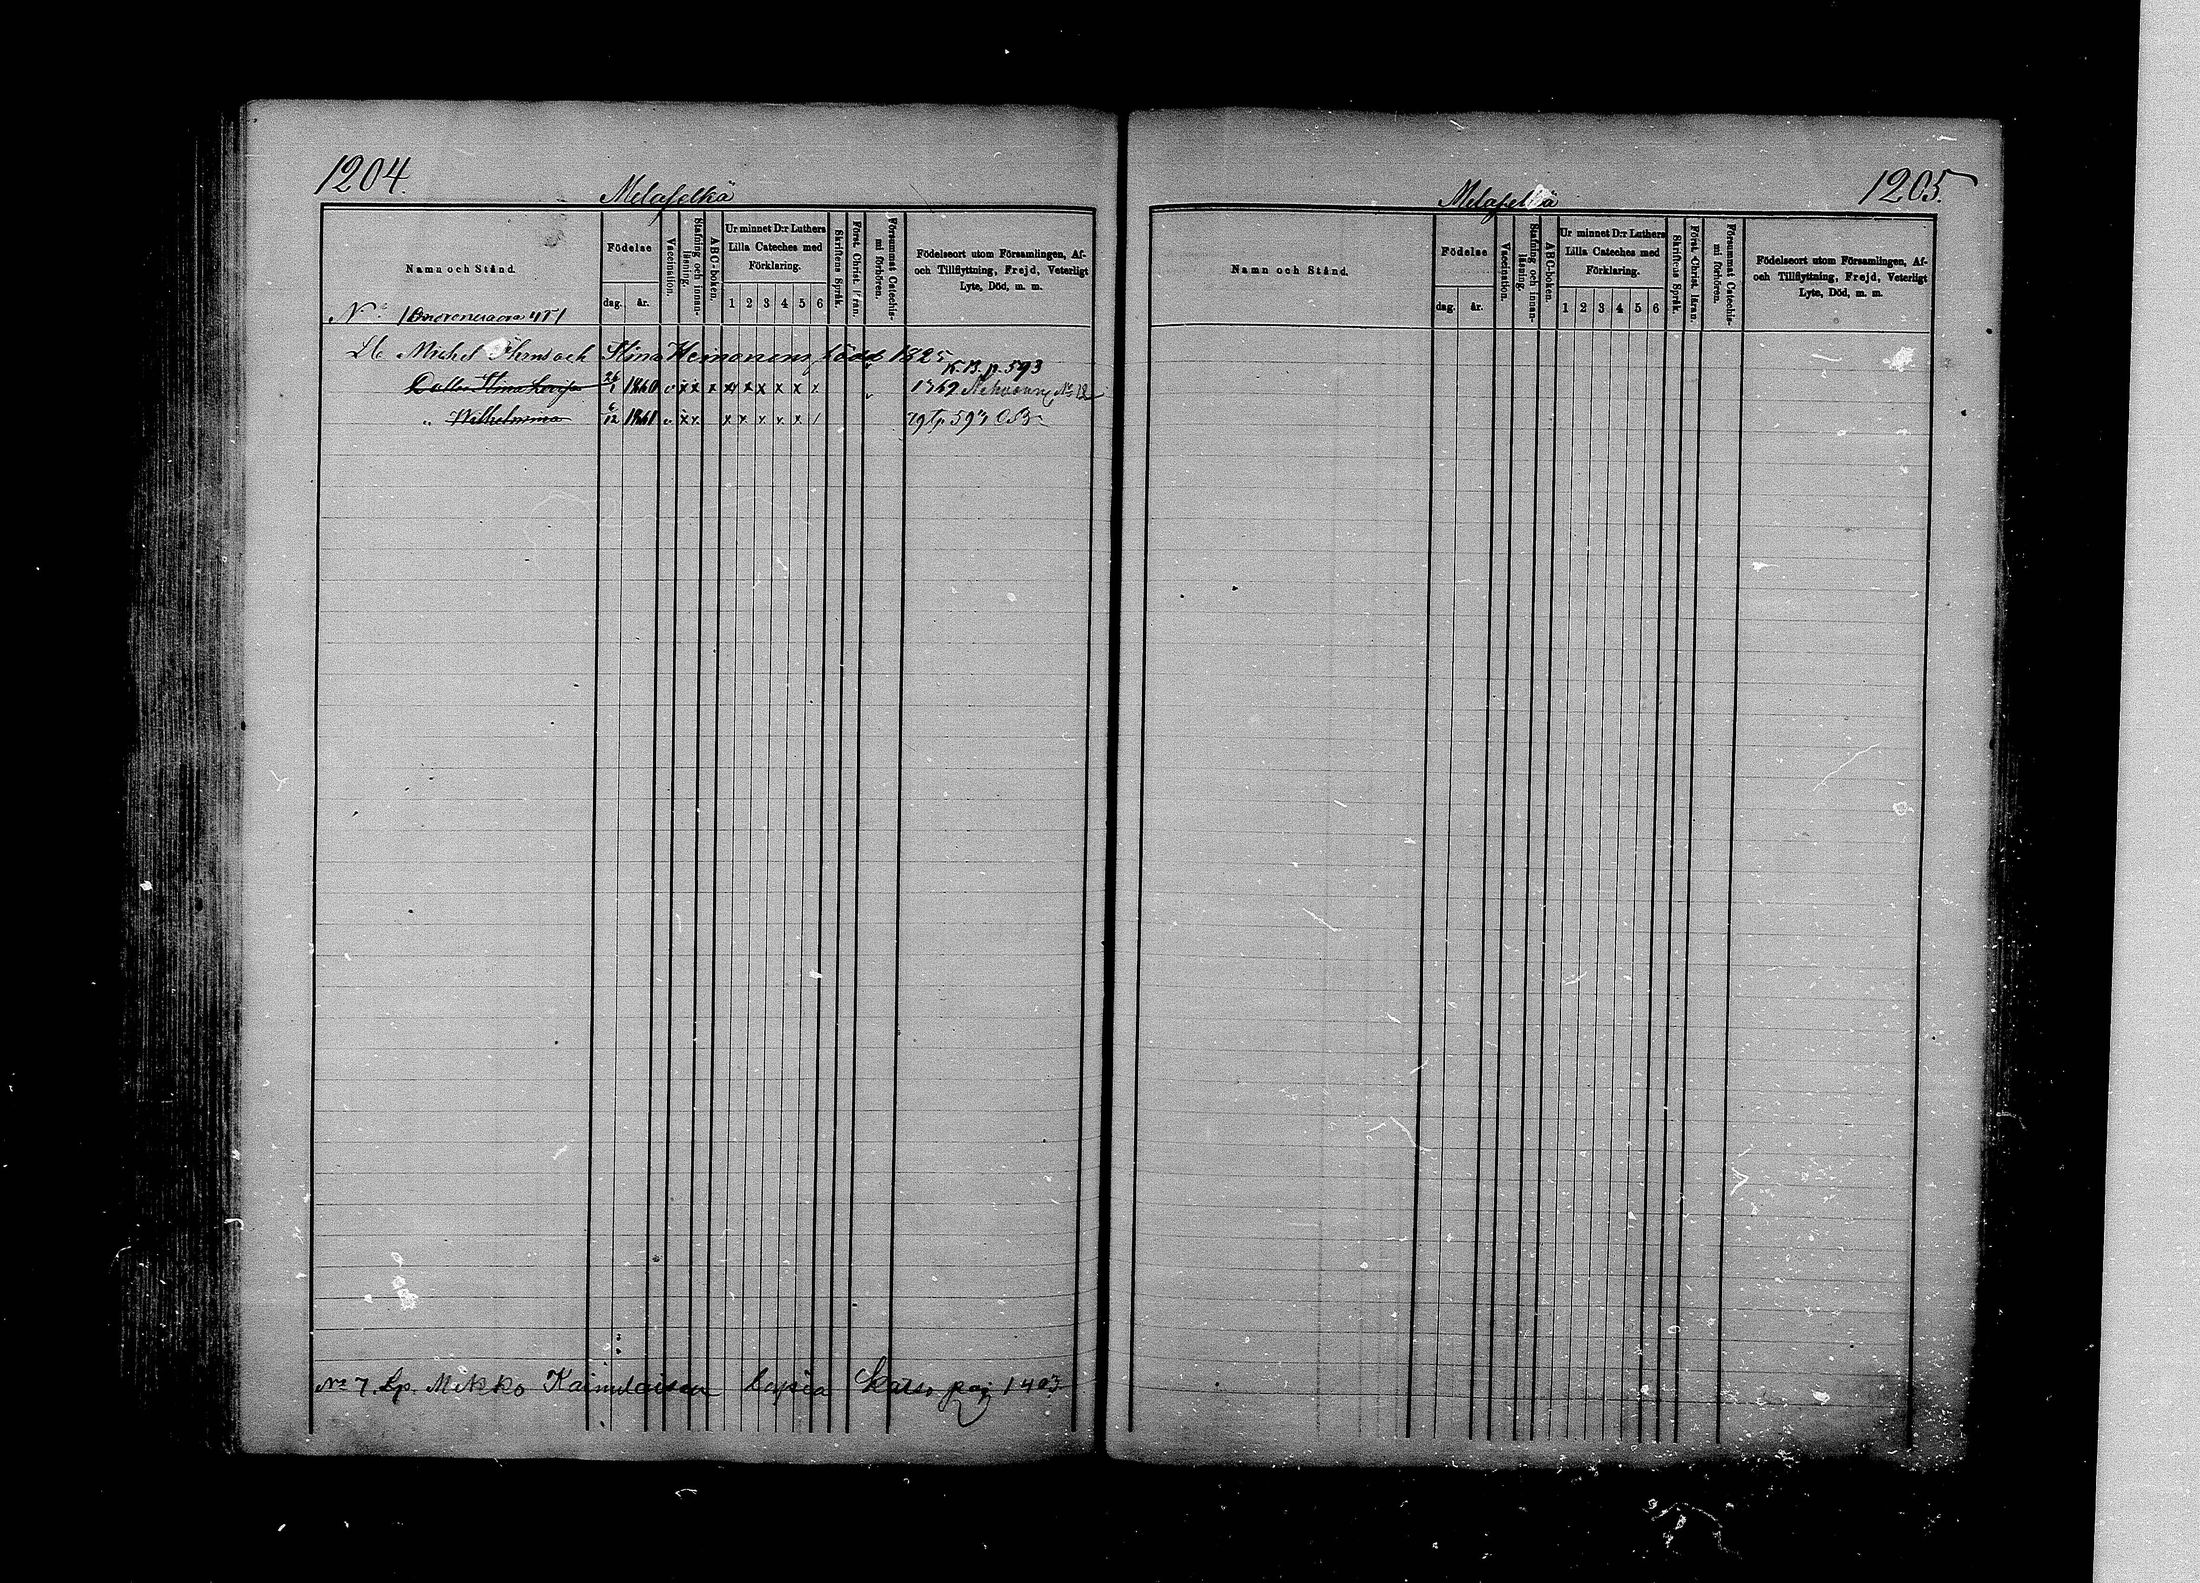 1204.
Melaselkä
Namn och Stånd.
Födelse
dag. år.
Vaccination.
Stafning och innanläsning.
ABC-boken.
Ur minnet D:r Luthers Lilla Cateches med Förklaring.
1 2 3 4 5 6
Skriftens Språk.
Först. Christ. läran.
Försummat Catechismi förhören.
Födelseort utom Församlingen, Af- och Tillflyttning, Frejd, Veterligt Lyte, Död, m. m.
N:o 1
Michel och Stina Heinonens född 1825
K.B. p. 593
Dotter Stina Lovisa 26/1 1860 v x x x x x x x x 1362 N:o 12
" Wilhelmina 6/12 1861 v x x x x x x x / 593
N:o 7. Lp. Mikko Kaimulaisen Lapsia katso pag 1403
1205.
Melaselkä
Namn och Stånd.
Födelse
dag. år.
Vaccination.
Stafning och innanläsning.
ABC-boken.
Ur minnet D:r Luthers Lilla Cateches med Förklaring.
1 2 3 4 5 6
Skriftens Språk.
Först. Christ. läran.
Försummat Catechismi förhören.
Födelseort utom Församlingen, Af- och Tillflyttning, Frejd, Veterligt Lyte, Död, m. m.